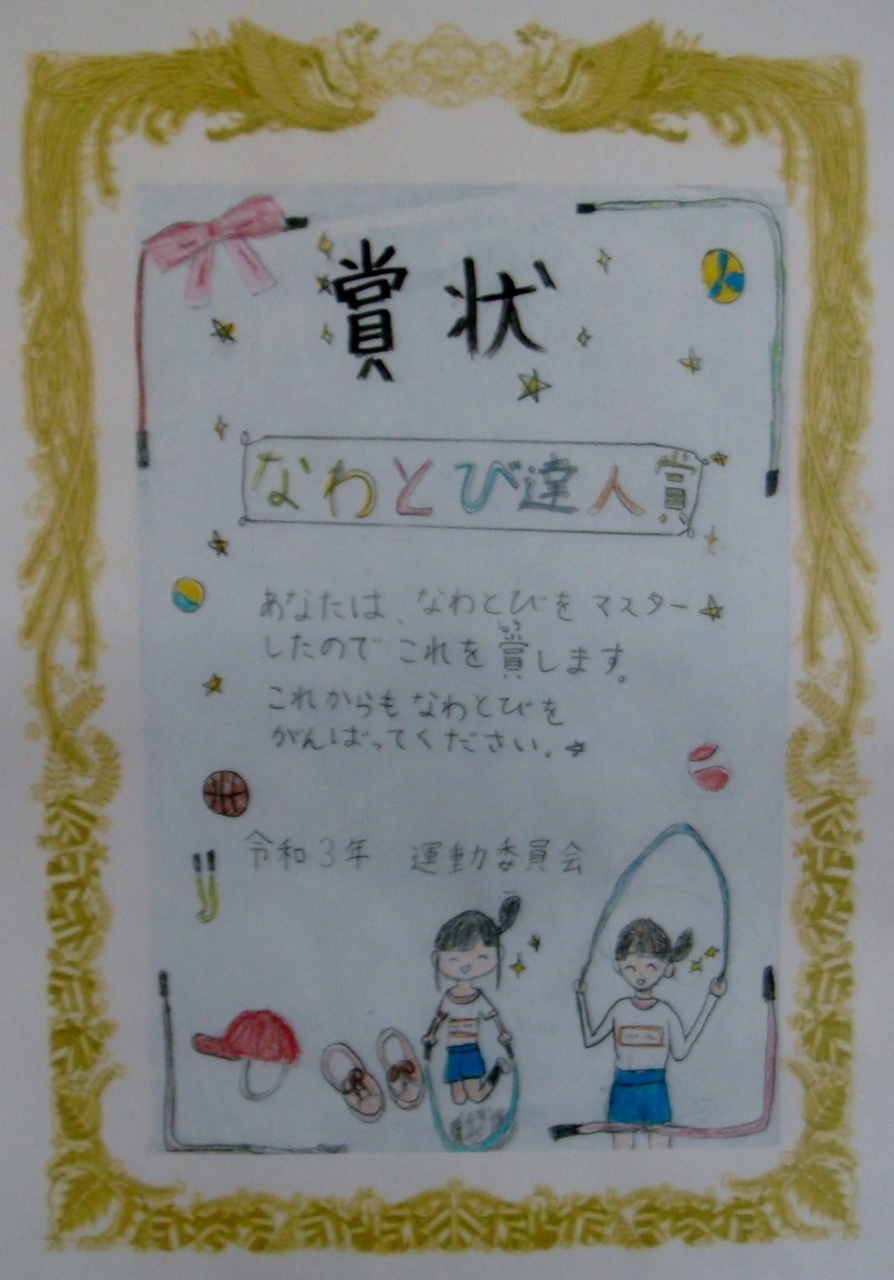 賞状
なわとび達人賞
あなたは、なわとびをマスター
したのでこれを賞します。
これからもなわとびを
がんばってください。
令和3年 運動委員会